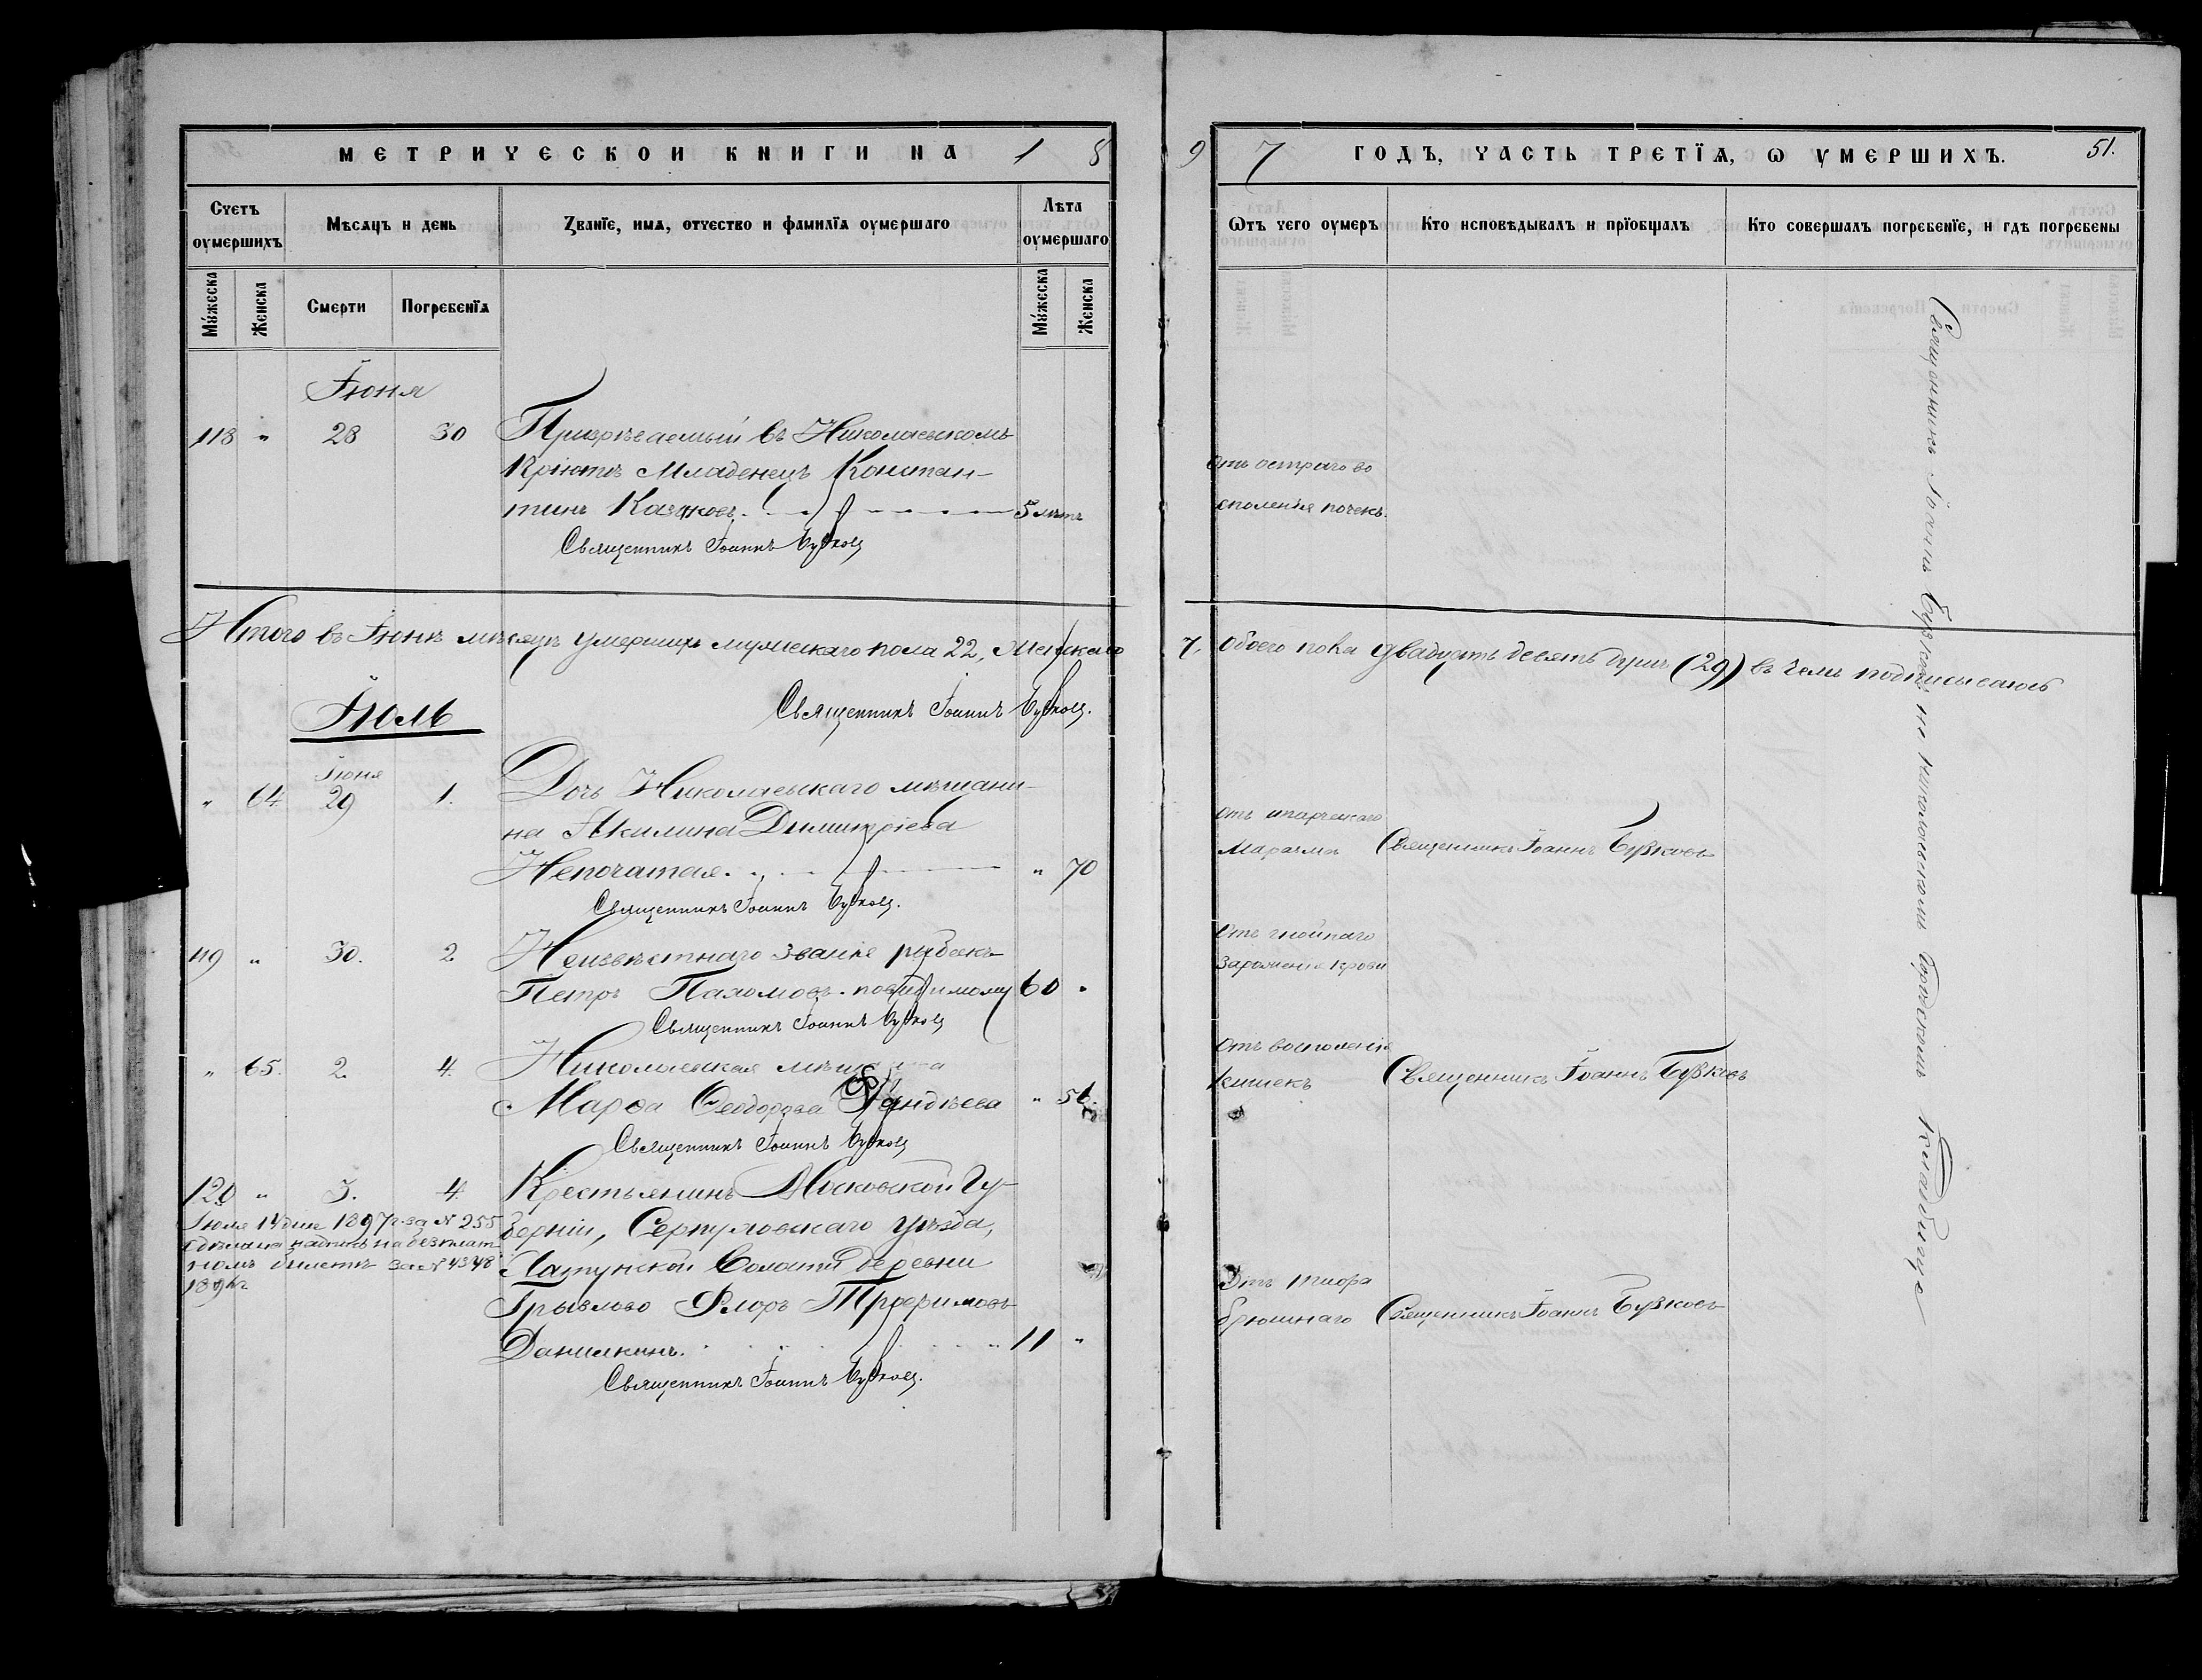 МЕТРИЧЕСКОЙ КНИГИ НА 18
97 ГОДЪ, ЧАСТЬ ТРЕТЇѦ, Ѡ ОУМЕРШИХЪ.
51.
Счетъ оумершихъ
Мѣсяцъ и день
Званїе, имѧ, отчество и фамилїѧ оумершаго
Лѣта оумершаго
Ѿтъ чего оумеръ
Кто исповѣдывалъ и прїобщалъ
Кто совершалъ погребенїе, и гдѣ погребены
Мꙋжеска
Женска
Смерти
Погребенїѧ
Мꙋжеска
Женска
Іюня
118 " 28 30 Призрѣваемый въ Николаевскомъ
Пріютѣ Младенецъ Констан-
тинъ Казаковъ. 5 лѣтъ
Священникъ Іоаннъ Бузковъ
Отъ остраго во
споленія почекъ.
Итого въ Іюнѣ мѣсяцѣ умершихъ мужескаго пола 22, Женскаго
7, обоего пола двадцать девять душъ (29) въ чемъ подписываюсь
Священникъ Іоаннъ Бузковъ.
Іюль
Іюня
" 64 29 1. Дочь Николаевскаго мѣщани-
на Акилина Димитріева
Непочатая. " 70
Священникъ Іоаннъ Бузковъ.
отъ старческаго
Маразма Священникъ Іоаннъ Бузковъ
119 " 30. 2 Неизвѣстнаго званія рыбакъ
Петръ Пахомовъ. повидимому 60 "
Священникъ Іоаннъ Бузковъ
Отъ гнойнаго
Зараженія крови
" 65. 2. 4. Николаевская мѣщанка
Марѳа Ѳеодорова
" 51.
Священникъ Іоаннъ Бузковъ
Отъ восполенія
кишекъ Священникъ Іоаннъ Бузковъ
120 " 3. 4. Крестьянинъ Московской Гу-
берніи, Серпуховскаго уѣзда,
волости деревни
Грызлово Флоръ Трофимовъ
Данилкинъ. 11 "
Священникъ Іоаннъ Бузковъ.
Іюля 14 дня 1897 г. за № 255
сдѣлана надпись на безплат
номъ билетѣ за № 4348
Отъ тифа
брюшнаго Священникъ Іоаннъ Бузковъ
Священникъ Іоаннъ Бузковъ на николаевскомъ городскомъ Кладбище